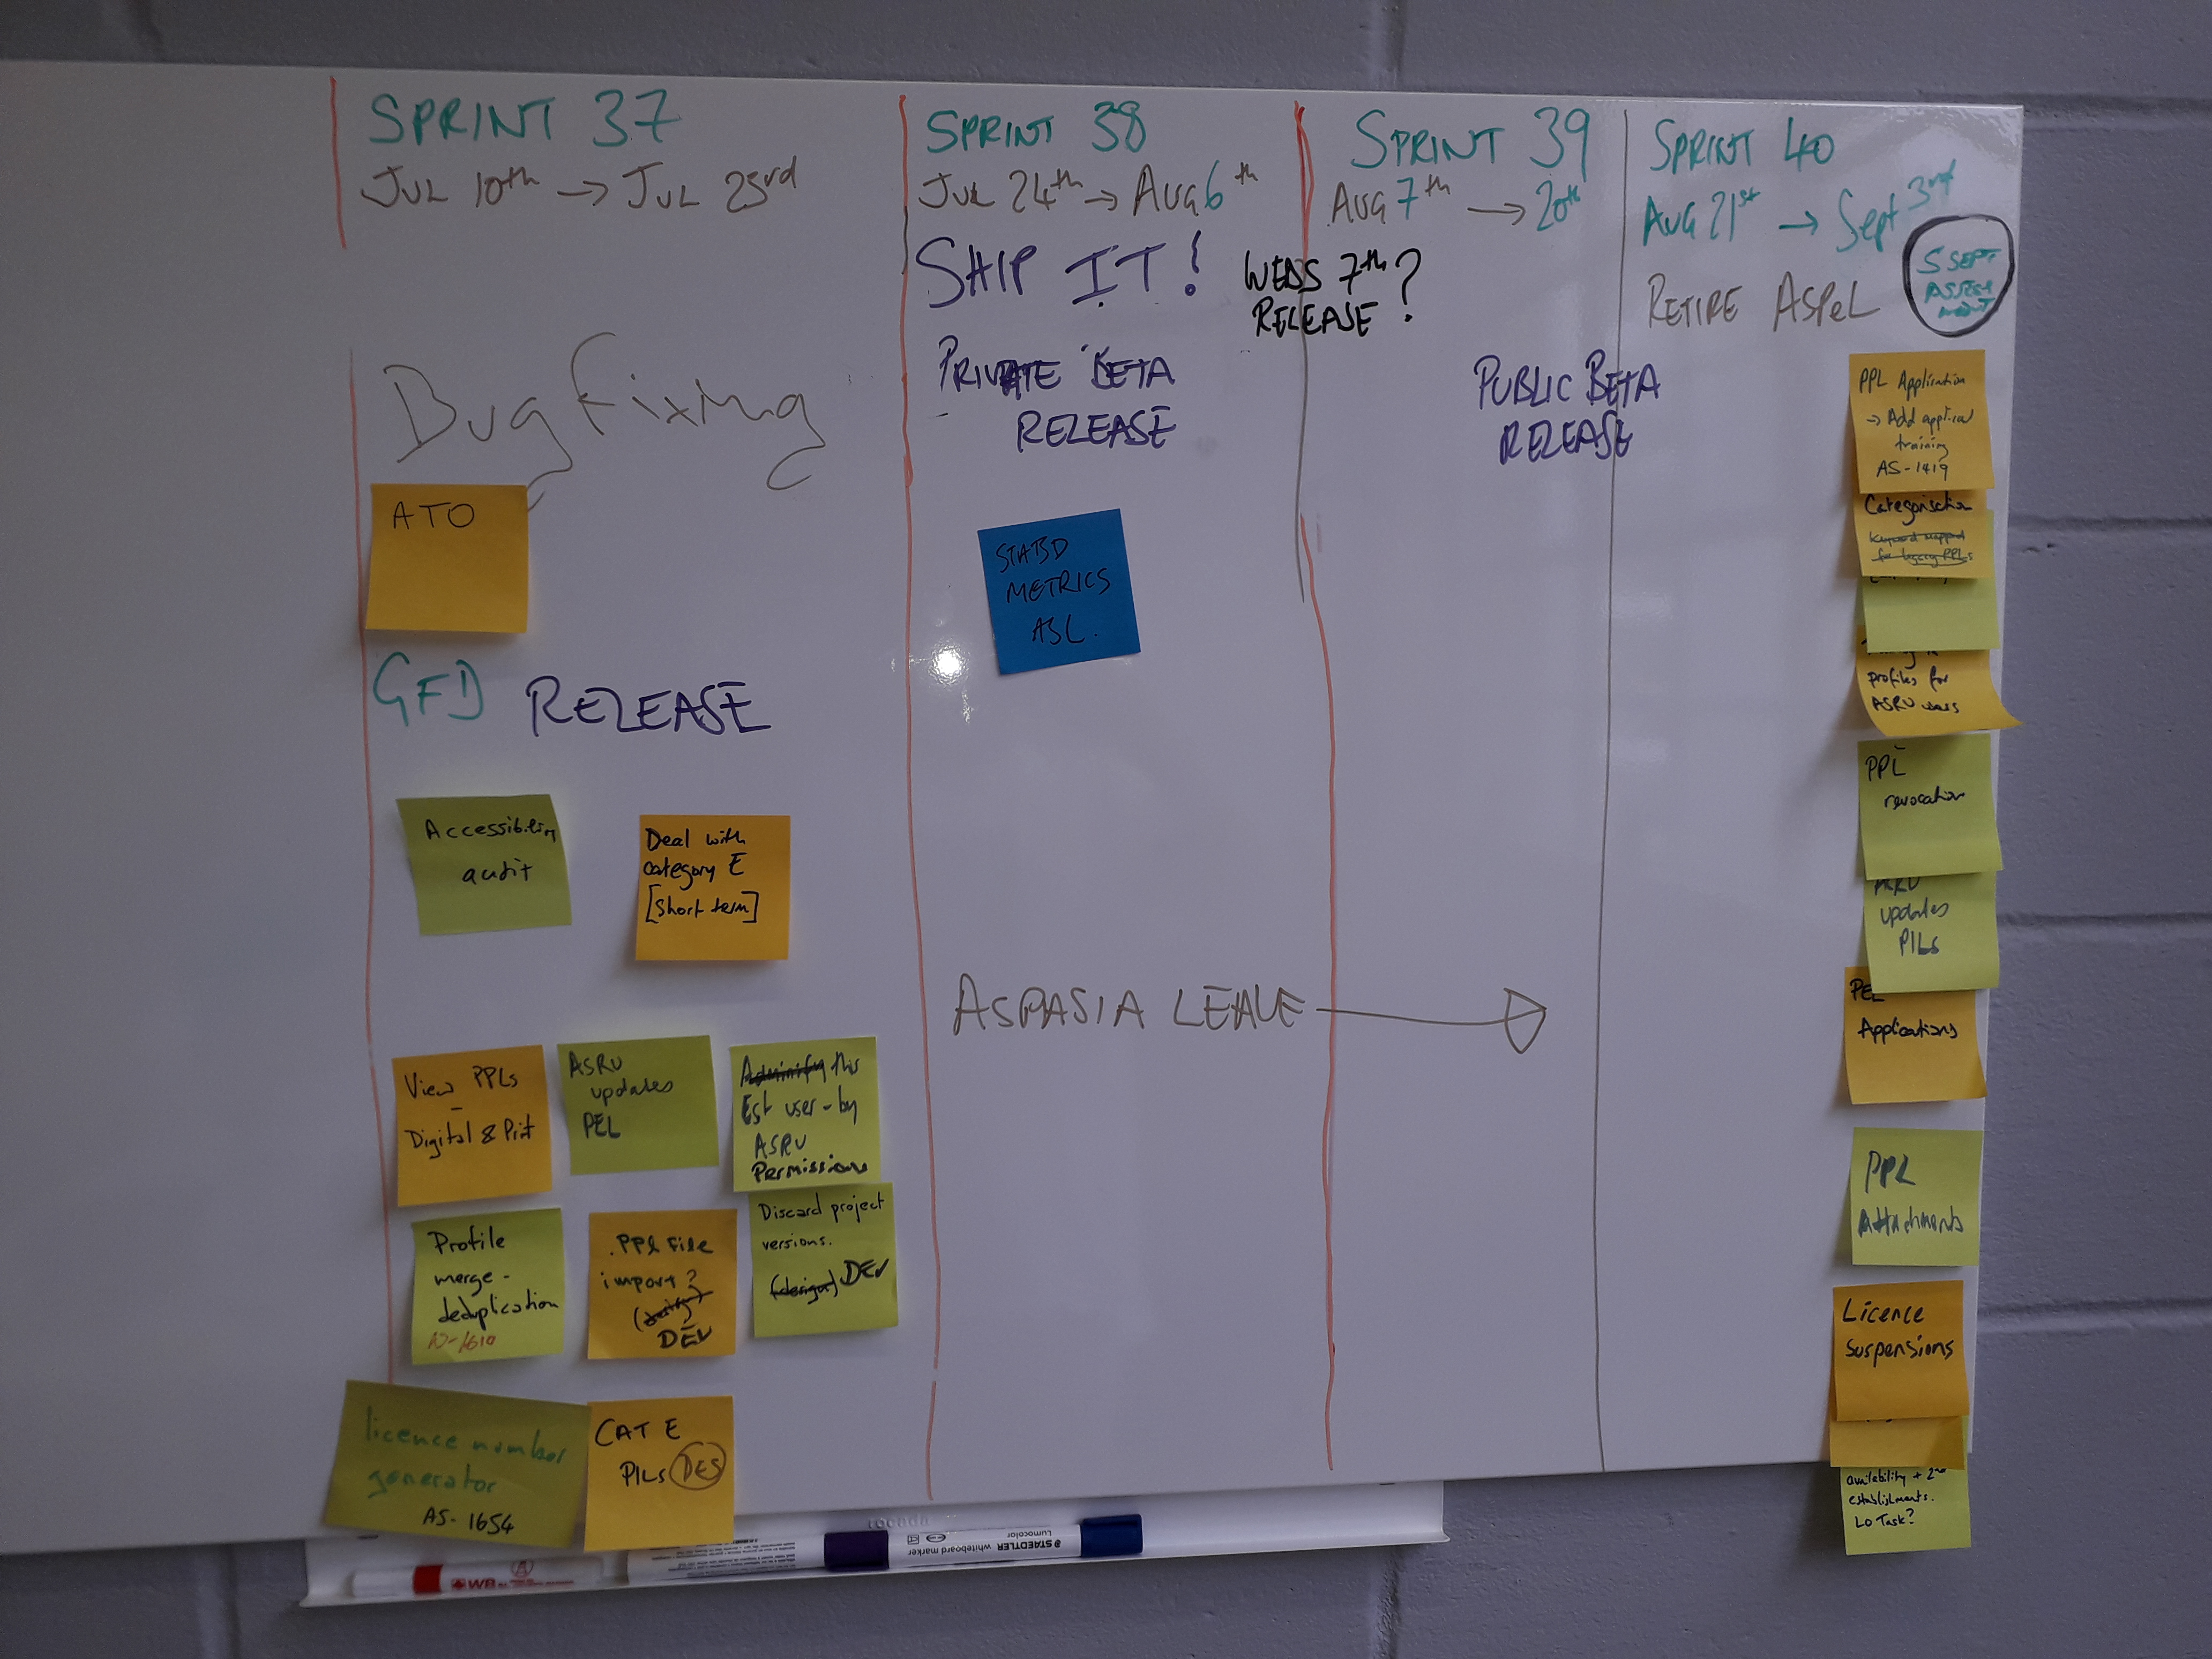 SPRINT 37
JUL 10th → JUL 23rd
Bug Fixing
ATO
GFD RELEASE
Accessibility
audit
Deal with
category E
[short term]
View PPLs
-
Digital & Print
ASRU
updates
PEL
this
Est user - by
ASRU
Permissions
Profile
merge -
deduplication
.PPL File
import?
DEV
Discard project
versions.
(design) DEV
licence number
generator
AS-1654
CAT E
PILs DES
SPRINT 38
JUL 24th → AUG 6th
SHIP IT!
PRIVATE BETA
RELEASE
METRICS
ASL.
ASPASIA LEAVE →
WEDS 7th?
RELEASE
SPRINT 39
AUG 7th → 20th
PUBLIC BETA
RELEASE
SPRINT 40
AUG 21st → Sept 3rd
RETIRE ASPeL
5 SEPT
ASSESS
MENT
PPL Application
→ Add
training
AS-1419
Categorisation
for legacy PPLs
profiles for
ASRU users
PPL
revocation
ASRU
updates
PILs
PEL
Applications
PPL
Attachments
Licence
Suspensions
availability + 2nd
establishments.
Lo Task?
rocada
STAEDTLER whiteboard marker
Lumocolor
WB